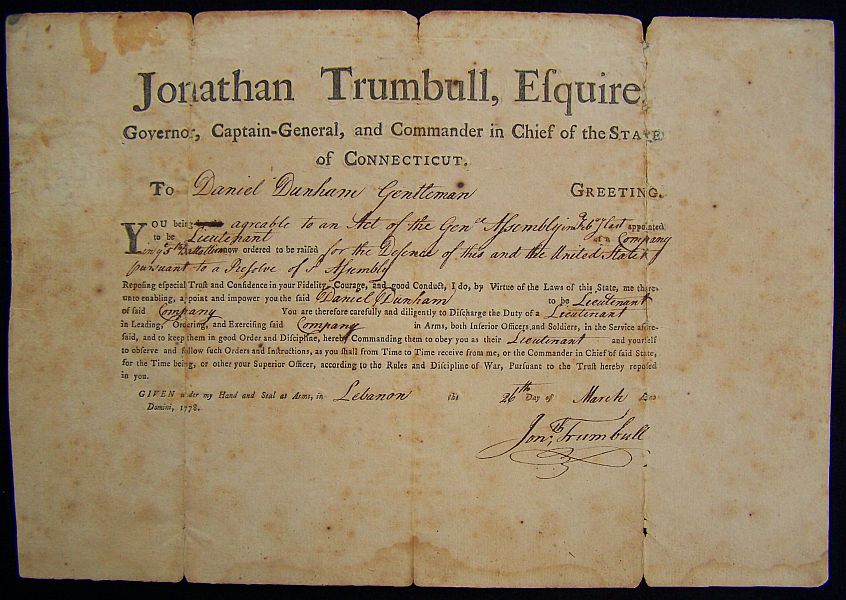 Jonathan Trumbull, Eſquire,
Governor, Captain-General, and Commander in Chief of the STATE
of CONNECTICUT.
To Daniel Dunham Gentleman GREETING.
YOU being agreable to an Act of the Genˡ Aſsembly in Febʸ last appointed
to be Lieutenant of a Company
in yᵉ 5ᵗʰ Battalion now ordered to be raiſed for the Defence of this and the United States
pursuant to a Resolve of sᵈ Aſsembly
Repoſing eſpecial Truſt and Confidence in your Fidelity, Courage, and good Conduct, I do, by Virtue of the Laws of this State, me there-
unto enabling, appoint and impower you the ſaid Daniel Dunham to be Lieutenant
of ſaid Company You are therefore carefully and diligently to Diſcharge the Duty of a Lieutenant
in Leading, Ordering, and Exerciſing ſaid Company in Arms, both Inferior Officers and Soldiers, in the Service afore-
ſaid, and to keep them in good Order and Diſcipline, hereby Commanding them to obey you as their Lieutenant and yourſelf
to obſerve and follow ſuch Orders and Inſtructions, as you ſhall from Time to Time receive from me, or the Commander in Chief of ſaid State,
for the Time being, or other your Superior Officer, according to the Rules and Diſcipline of War, Purſuant to the Truſt hereby repoſed
in you.
GIVEN under my Hand and Seal at Arms, in Lebanon the 26th Day of March Anno
Domini, 1778.
Jonᵗʰ Trumbull